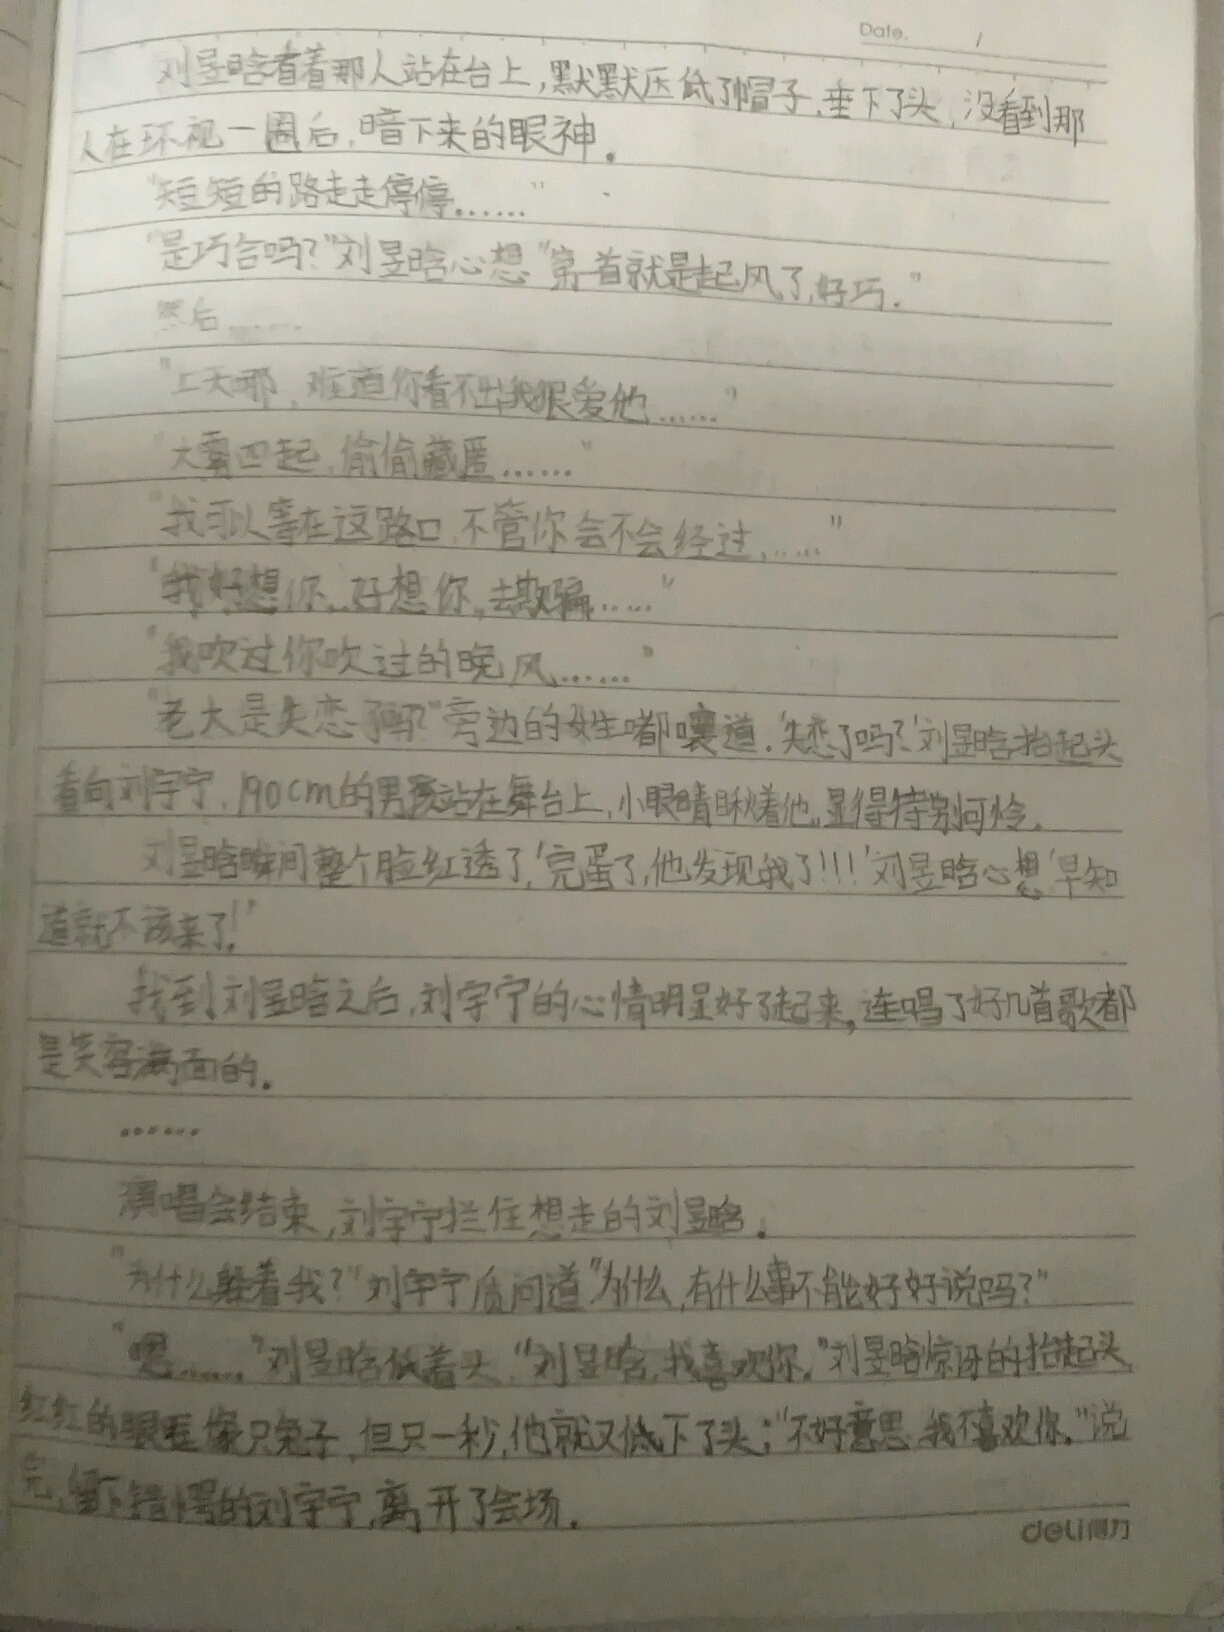 Date. /
刘昱晗看着那人站在台上,默默压低了帽子,垂下了头,没看到那
人在环视一圈后,暗下来的眼神。
"短短的路走走停停……"
"是巧合吗?"刘昱晗心想"第一首就是起风了,好巧。"
然后……
"上天哪,难道你看不出我很爱他……"
"大雾四起,偷偷藏匿……"
"我可以等在这路口,不管你会不会经过……"
"我好想你,好想你,去欺骗……"
"我吹过你吹过的晚风……"
"老大是失恋了吗?"旁边的女生嘟囔道.'失恋了吗?'刘昱晗抬起头
看向刘宇宁,190cm的男孩站在舞台上,小眼睛瞅着他,显得特别可怜。
刘昱晗瞬间整个脸红透了,'完蛋了,他发现我了!!!'刘昱晗心想'早知
道就不该来了!'
找到刘昱晗之后,刘宇宁的心情明显好了起来,连唱了好几首歌都
是笑容满面的。
……
演唱会结束,刘宇宁拦住想走的刘昱晗。
"为什么躲着我?"刘宇宁质问道"为什么,有什么事不能好好说吗?"
"嗯……"刘昱晗低着头,"刘昱晗,我喜欢你。"刘昱晗惊讶的抬起头
红红的眼眶像只兔子,但只一秒,他就又低下了头;"不好意思,我不喜欢你。"说
完,留下错愕的刘宇宁,离开了会场。
deli得力